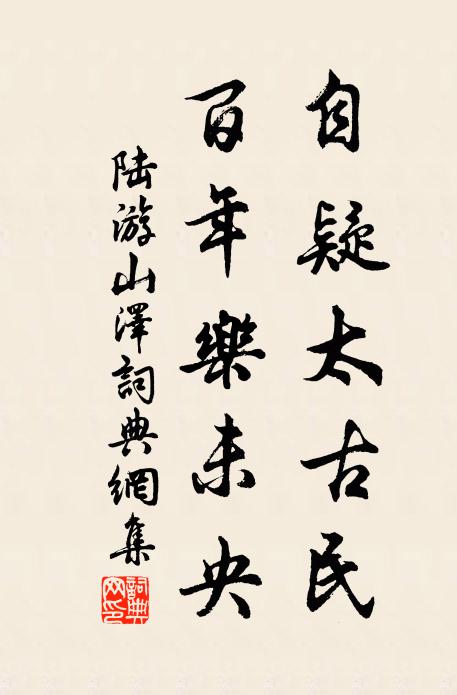 自疑太古民
百年樂未央
陸游山澤詞典網集
詞典網印